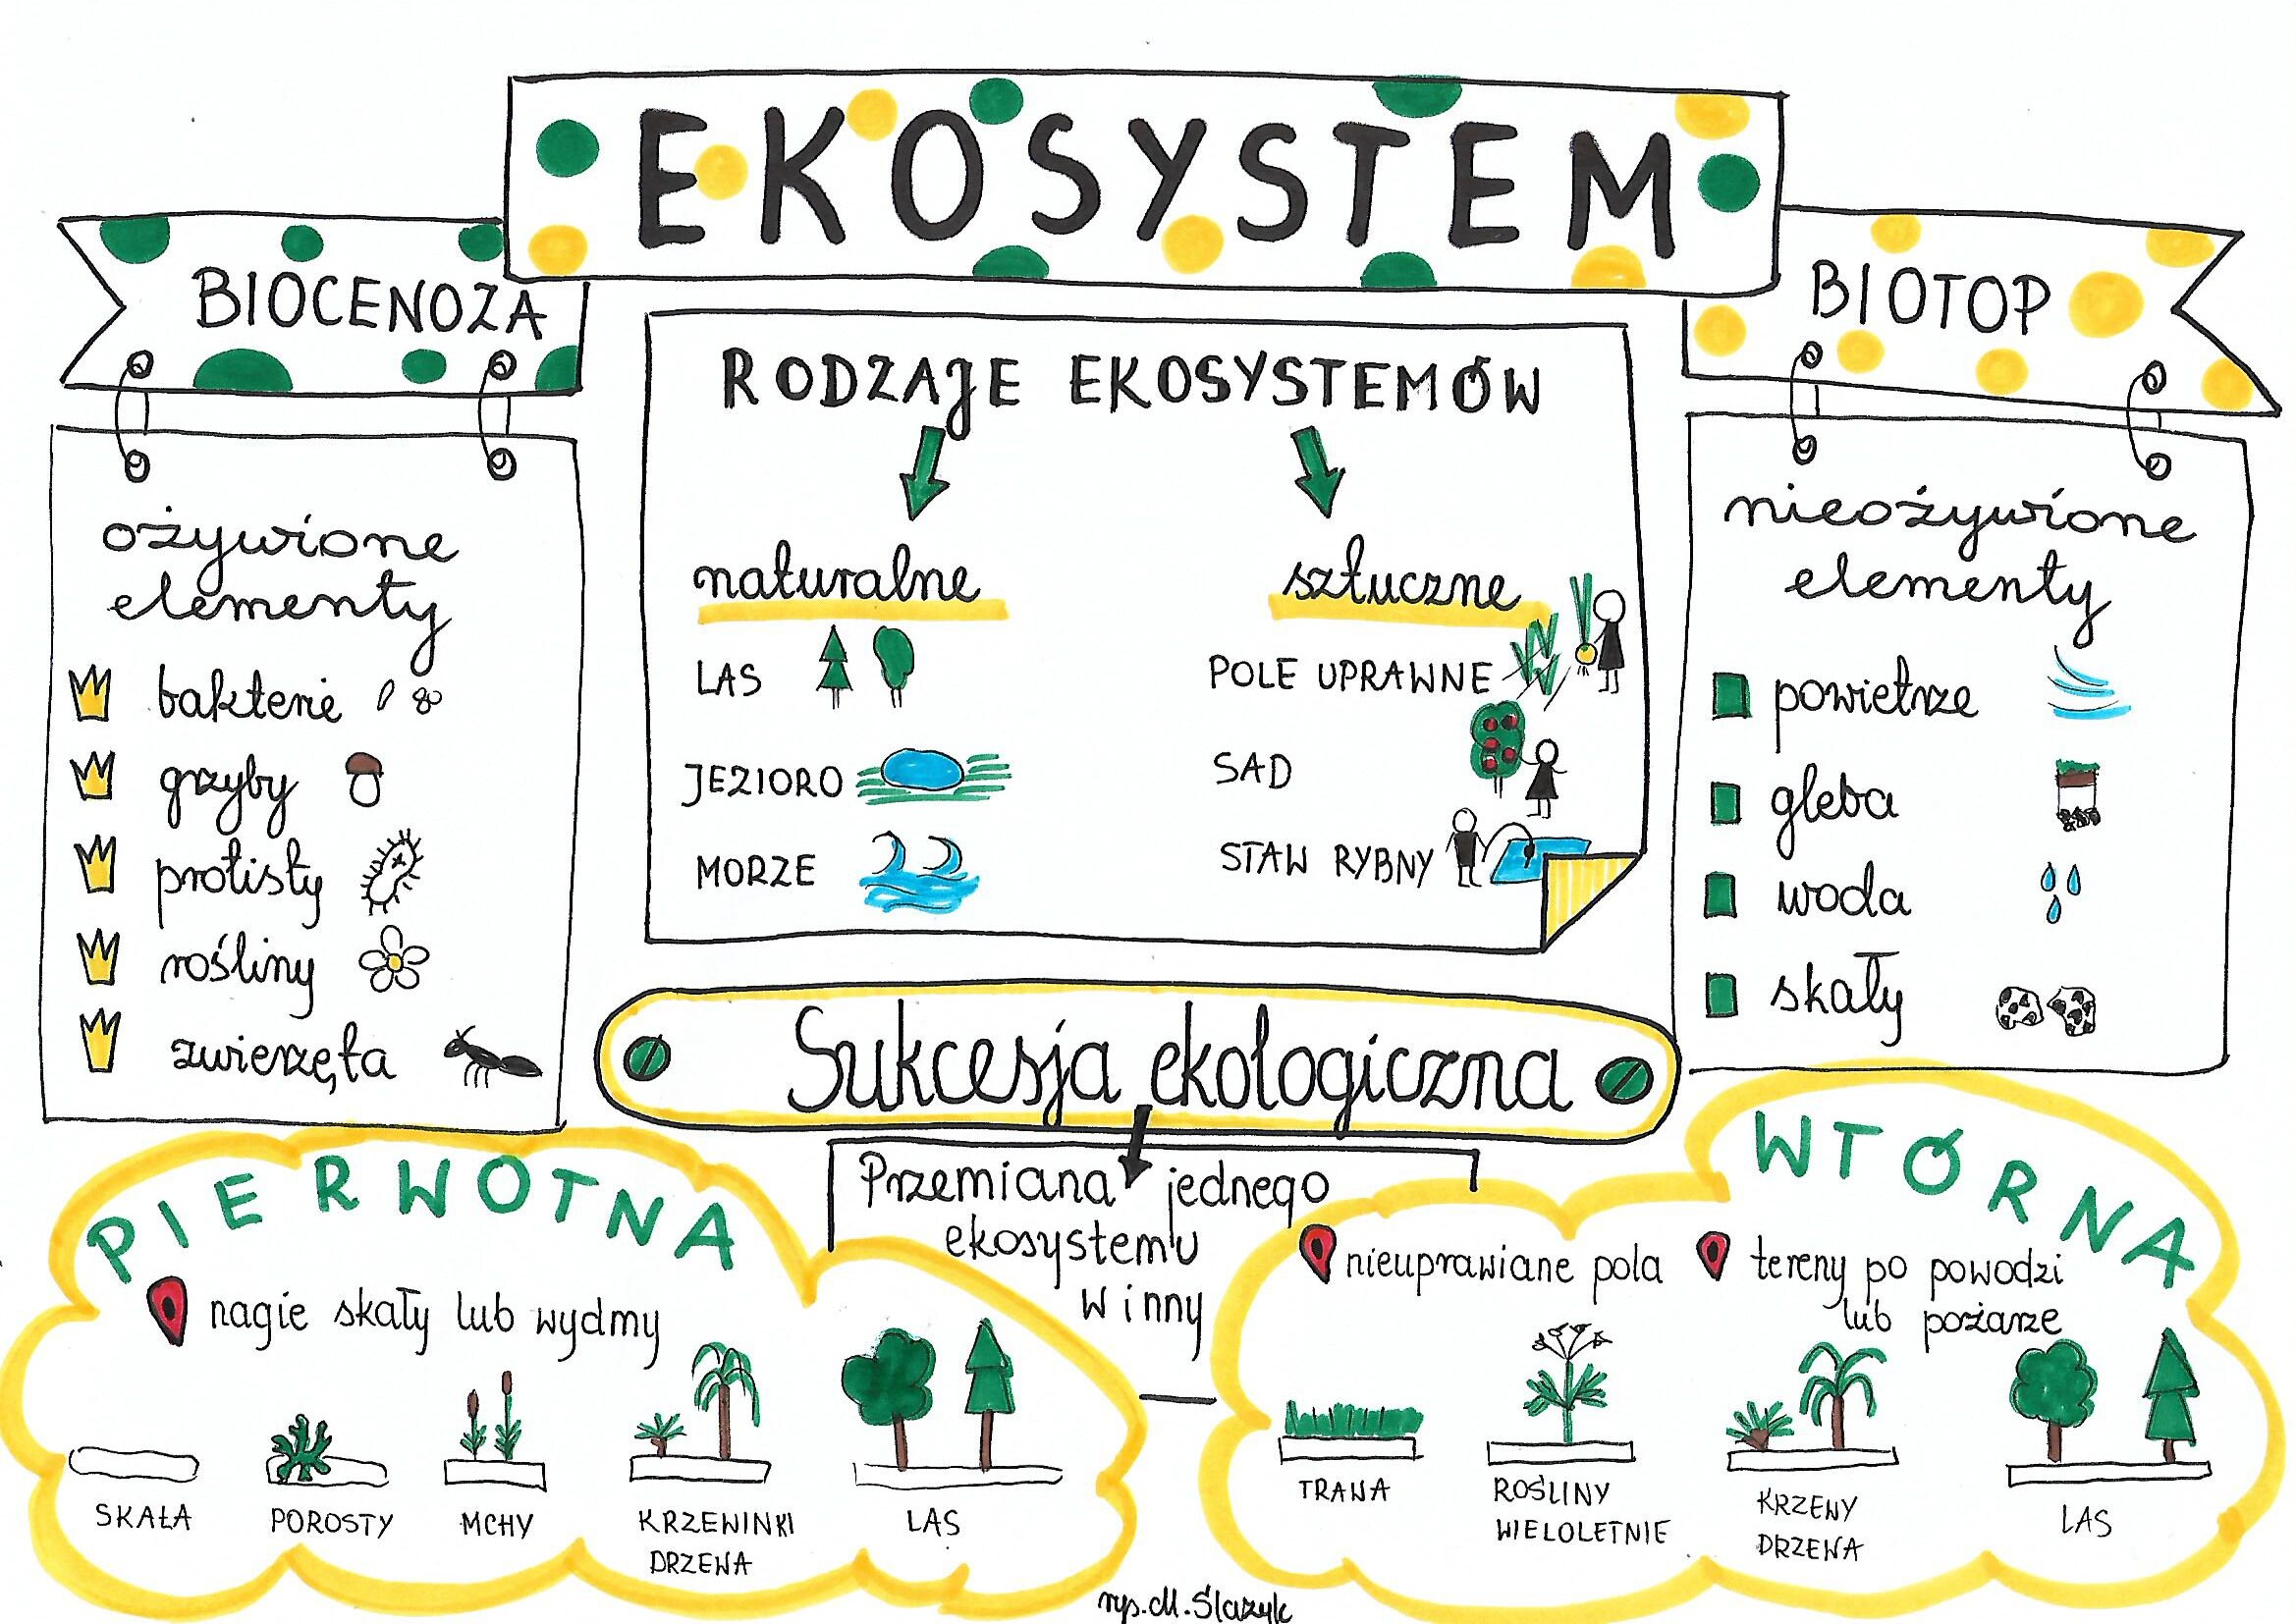 EKOSYSTEM
BIOCENOZA
ożywione
elementy
bakterie
grzyby
protisty
rośliny
zwierzęta
RODZAJE EKOSYSTEMÓW
naturalne
LAS
JEZIORO
MORZE
sztuczne
POLE UPRAWNE
SAD
STAW RYBNY
BIOTOP
nieożywione
elementy
powietrze
gleba
woda
skały
Sukcesja ekologiczna
Przemiana jednego
ekosystemu
w inny
PIERWOTNA
nagie skały lub wydmy
SKAŁA
POROSTY
MCHY
KRZEWINKI
DRZEWA
LAS
WTÓRNA
nieuprawiane pola
tereny po powodzi
lub pożarze
TRAWA
ROŚLINY
WIELOLETNIE
KRZEWY
DRZEWA
LAS
rys. M. Ślazyk